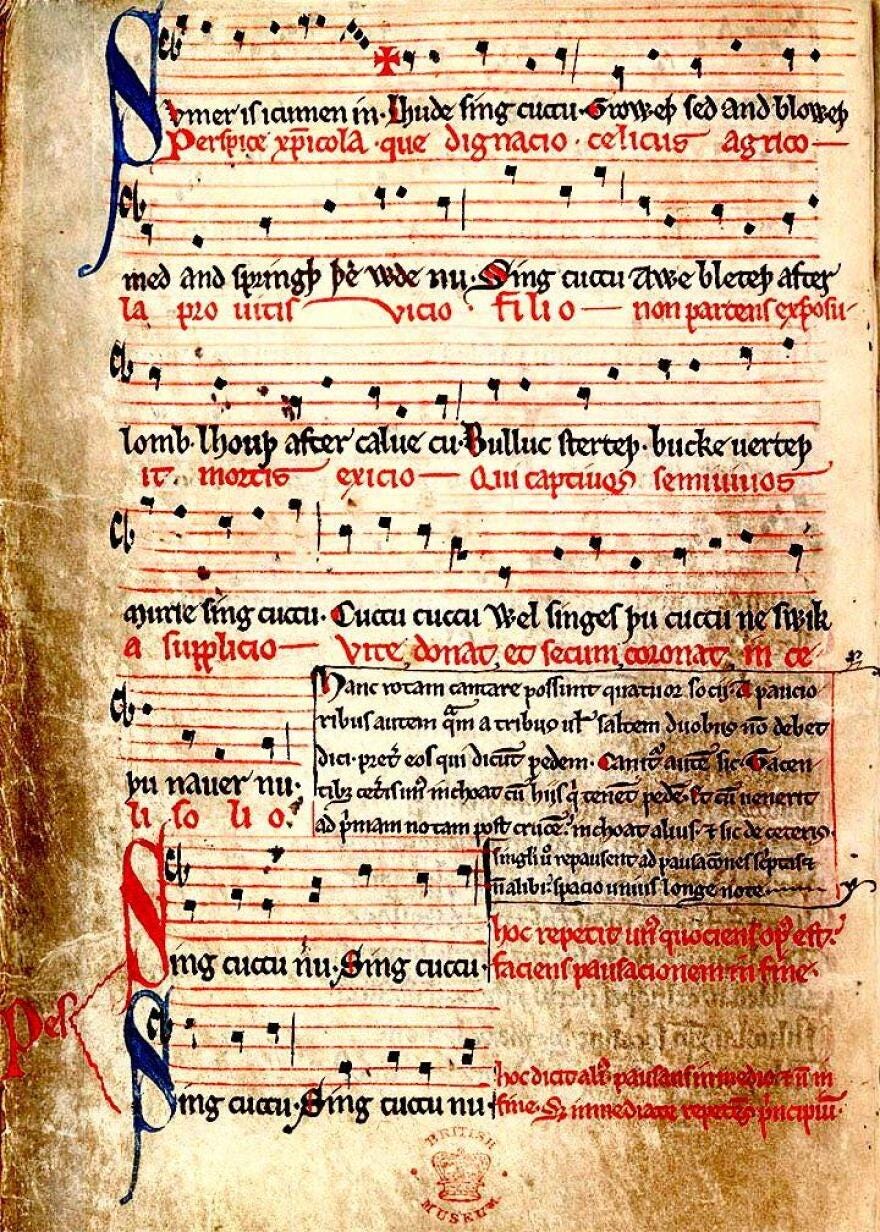 Svmer is icumen in. Lhude sing cuccu. Groweþ sed and bloweþ
Perspice xp̅icola que dignacio celicus agrico
med and springþ þe wde nu. Sing cuccu Awe bleteþ after
la pro uitis vicio filio non parcens exposu
lomb. lhouþ after calue cu. Bulluc sterteþ. bucke uerteþ
it mortis exicio Qui captiuos semiuiuos
murie sing cuccu. Cuccu cuccu Wel singes þu cuccu ne swik
a supplicio Vite donat, et secum coronat, in ce
þu nauer nu.
li so li o.
Hanc rotam cantare possunt quatuor socij. A paucio
ribus autem q̅m a tribus ul' saltem duobus no̅ debet
dici. pret̓ eos qui dicu̅t pedem. Canit᷑ aute̅ sic. Tacen
tib; cet̓is un᷒ inchoat cu̅ hiis q̓ tene̅t pede̅. Et cu̅ uenerit
ad p̓mam notam post cruce̅. inchoat alius. ⁊ sic de ceteris.
singl̓i u̓ repausent ad pausac̅ones sc̓ptas ⁊
n̅ alibi. spacio unius longe note.
Sing cuccu nu. Sing cuccu.
hoc repetit un᷒ quociens op᷒ est.
faciens pausacionem in fine.
Pes
Sing cuccu. Sing cuccu nu
hoc dicit ali᷒ pausans in medio ⁊ n̅ in
fine. S; immediate repetens p̓ncipiu̅.
BRITISH
MUSEUM